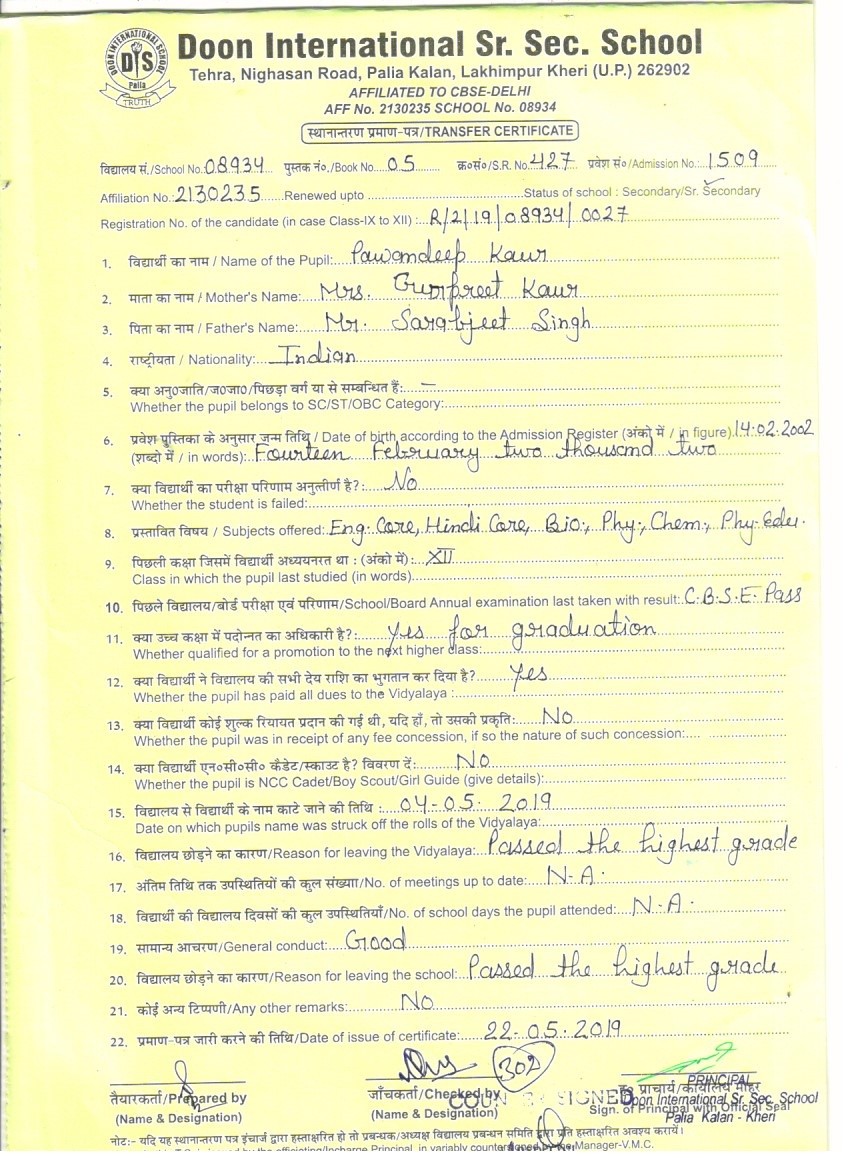 DOON INTERNATIONAL SCHOOL
DIS
Palia
TRUTH
Doon International Sr. Sec. School
Tehra, Nighasan Road, Palia Kalan, Lakhimpur Kheri (U.P.) 262902
AFFILIATED TO CBSE-DELHI
AFF No. 2130235 SCHOOL No. 08934
स्थानान्तरण प्रमाण-पत्र/TRANSFER CERTIFICATE
विद्यालय सं./School No. 08934 पुस्तक नं./Book No. 05 क्र०सं०/S.R. No. 427 प्रवेश सं०/Admission No.: 1509
Affiliation No.: 2130235 Renewed upto Status of school : Secondary/Sr. Secondary
Registration No. of the candidate (in case Class-IX to XII) : R/2/19/08934/0027
1. विद्यार्थी का नाम / Name of the Pupil: Pawandeep Kaur
2. माता का नाम / Mother's Name: Mrs. Gurpreet Kaur
3. पिता का नाम / Father's Name: Mr. Sarabjeet Singh
4. राष्ट्रीयता / Nationality: Indian
5. क्या अनु०जाति/ज०जा०/पिछड़ा वर्ग या से सम्बन्धित हैं: —
Whether the pupil belongs to SC/ST/OBC Category:
6. प्रवेश पुस्तिका के अनुसार जन्म तिथि / Date of birth according to the Admission Register (अंको में / in figure). 14.02.2002
(शब्दो में / in words): Fourteen February two thousand two
7. क्या विद्यार्थी का परीक्षा परिणाम अनुत्तीर्ण है?: No
Whether the student is failed:
8. प्रस्तावित विषय / Subjects offered: Eng. Core, Hindi Core, Bio., Phy., Chem., Phy. Edu.
9. पिछली कक्षा जिसमें विद्यार्थी अध्ययनरत था : (अंको में) : XII
Class in which the pupil last studied (in words)
10. पिछले विद्यालय/बोर्ड परीक्षा एवं परिणाम/School/Board Annual examination last taken with result: C.B.S.E. Pass
11. क्या उच्च कक्षा में पदोन्नत का अधिकारी है?: Yes for graduation
Whether qualified for a promotion to the next higher class:
12. क्या विद्यार्थी ने विद्यालय की सभी देय राशि का भुगतान कर दिया है? Yes
Whether the pupil has paid all dues to the Vidyalaya :
13. क्या विद्यार्थी कोई शुल्क रियायत प्रदान की गई थी, यदि हाँ, तो उसकी प्रकृति: No
Whether the pupil was in receipt of any fee concession, if so the nature of such concession:
14. क्या विद्यार्थी एन०सी०सी० कैडेट/स्काउट है? विवरण दें: No
Whether the pupil is NCC Cadet/Boy Scout/Girl Guide (give details):
15. विद्यालय से विद्यार्थी के नाम काटे जाने की तिथि : 04-05-2019
Date on which pupils name was struck off the rolls of the Vidyalaya:
16. विद्यालय छोड़ने का कारण/Reason for leaving the Vidyalaya: Passed the highest grade
17. अंतिम तिथि तक उपस्थितियों की कुल संख्या/No. of meetings up to date: N.A.
18. विद्यार्थी की विद्यालय दिवसों की कुल उपस्थितियाँ/No. of school days the pupil attended: N.A.
19. सामान्य आचरण/General conduct: Good
20. विद्यालय छोड़ने का कारण/Reason for leaving the school: Passed the highest grade
21. कोई अन्य टिप्पणी/Any other remarks: No
22. प्रमाण-पत्र जारी करने की तिथि/Date of issue of certificate: 22-05-2019
302
तैयारकर्ता/Prepared by
(Name & Designation)
जाँचकर्ता/Checked by
(Name & Designation)
COUNTERSIGNED
ह० प्राचार्य/कार्यालय मोहर
Sign. of Principal with Official Seal
PRINCIPAL
Doon International Sr. Sec. School
Palia Kalan - Kheri
नोट:- यदि यह स्थानान्तरण पत्र इंचार्ज द्वारा हस्ताक्षरित हो तो प्रबन्धक/अध्यक्ष विद्यालय प्रबन्धन समिति द्वारा प्रति हस्ताक्षरित अवश्य करायें।
officiating/Incharge Principal, in variably countersigned by the Manager-V.M.C.